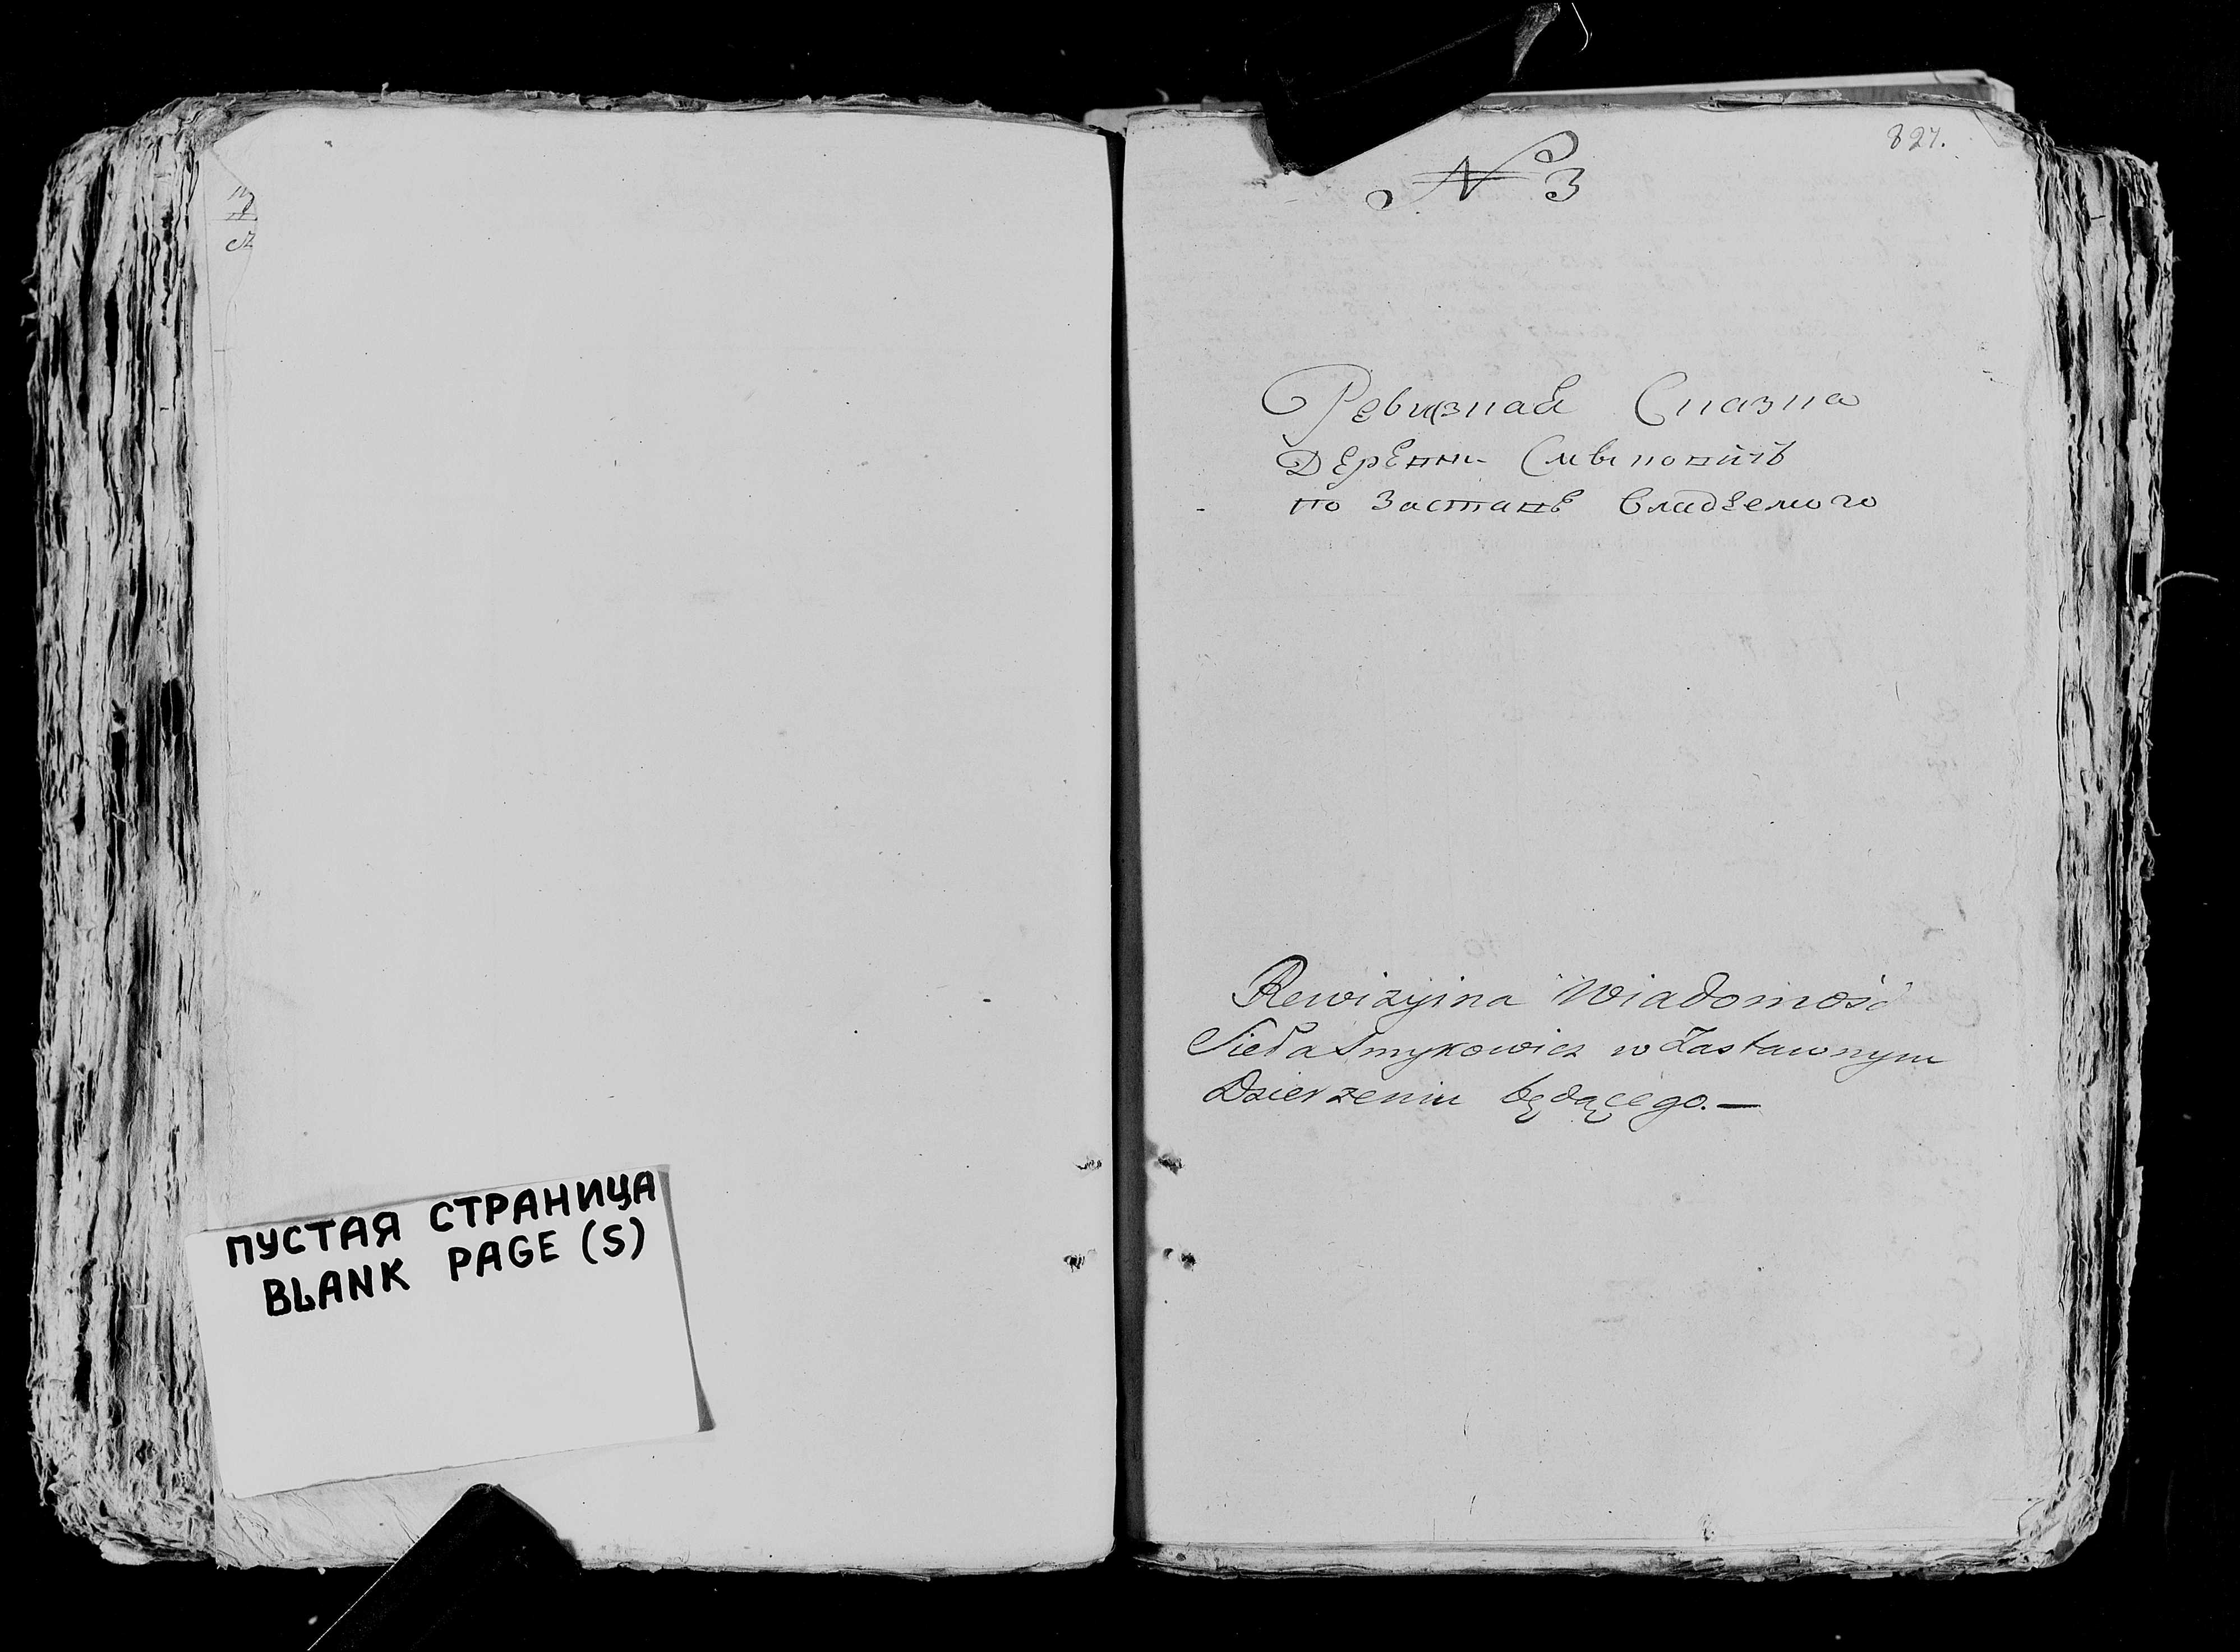 ПУСТАЯ СТРАНИЦА
BLANK PAGE (S)
827.
№ 3
Ревизная Сказка
Деревни Смыковичь
по Заставѣ Владѣемого
Rewizyina Wiadomość
Sieła Smykowicz w Zastawnym
Dzierzeniu będącego.—